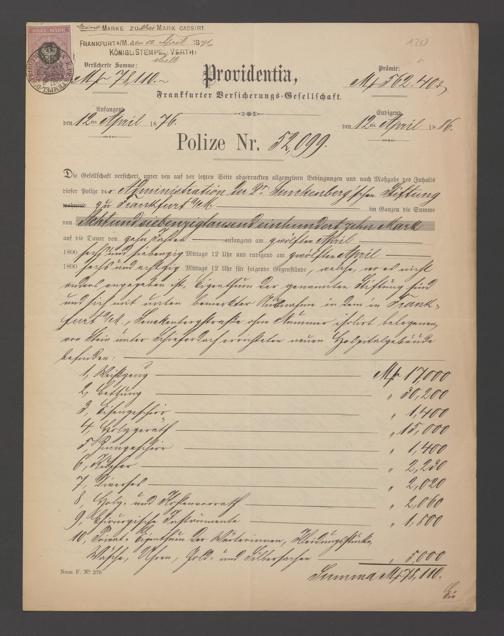 MARKE ZU MARK CASSIRT.
FRANKFURT A/M. den 12 April 1876
KÖNIGL: STEMPEL VERTH:
Versicherte Summe:
Mk 78,110.—
Providentia,
Frankfurter Versicherungs-Gesellschaft.
Prämie:
Mk 562.40
Anfangend
den 12ten April 1876.
Endigend
den 12ten April 1886.
Polize Nr. 52,099.
Die Gesellschaft versichert, unter den auf der letzten Seite abgedruckten allgemeinen Bedingungen und nach Maßgabe des Inhalts
dieser Polize der Administration der Dr. Senckenberg'schen Stiftung
zu Frankfurt a/M. im Ganzen die Summe
von Acht und siebenzig tausend ein hundert zehn Mark
auf die Dauer von zehn Jahren anfangend am zwölften April
sechs und siebenzig Mittags 12 Uhr und endigend am zwölften April
sechs und achtzig Mittags 12 Uhr für folgende Gegenstände, welche, wo es nicht
anders angegeben ist, Eigenthum der genannten Stiftung sind
und sich mit unten bemerkter Ausnahme in dem in Frank-
furt a/M., Senckenbergstraße ohne Nummer isolirt belegenen,
von Stein unter Schieferdach errichteten neuen Hospitalgebäude
befinden:
1, Weißzeug Mk 17,000
2, Bettung " 30,200
3, Eisengeschirr " 1,400
4, Holzgeräth " 15,000
5, " 1,400
6, " 2,250
7, Diverses " 2,020
8, Holz- und " 2,060
9, Chirurgische Instrumente " 1,800
10, Privat-Eigenthum der Wärterinnen, Kleidungsstücke,
Wäsche, Uhren, Gold- und Silbersachen " 5,000
Summa Mk 78,110.